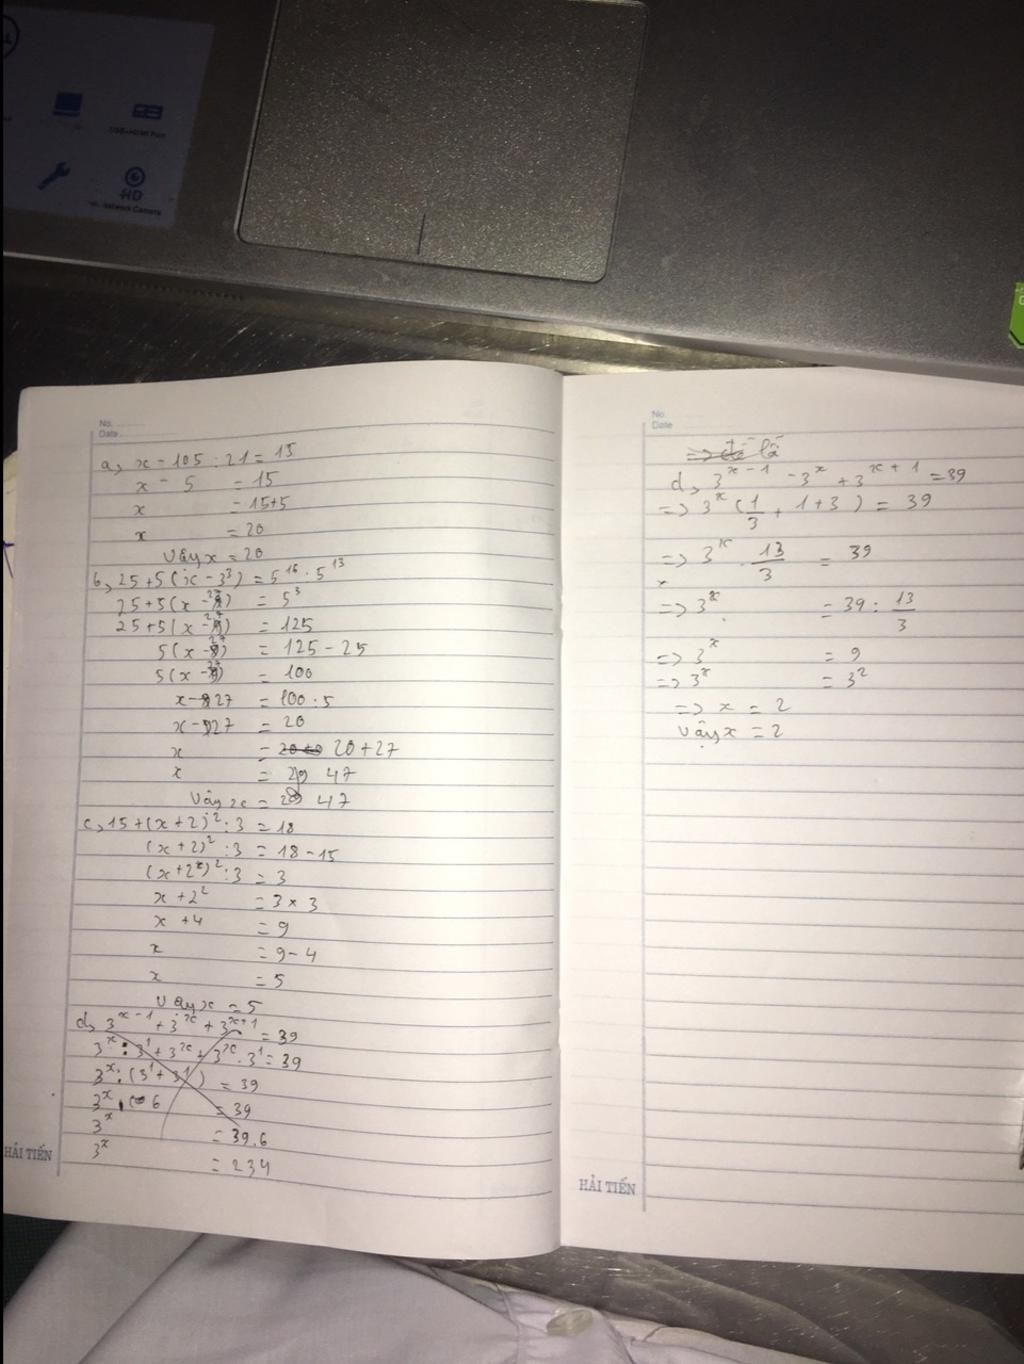 HD
Network Camera
No.
Date
a, x - 105 : 21 = 15
x - 5 = 15
x = 15+5
x = 20
Vậy x = 20
b, 25 + 5(x - 3³) = 5¹⁶ : 5¹³
25+5(x - 27) = 5³
25+5(x - 27) = 125
5(x - 27) = 125 - 25
5(x - 27) = 100
x - 27 = 100 : 5
x - 27 = 20
x = 20+27
x = 47
Vậy x = 47
c, 15 + (x+2)² : 3 = 18
(x+2)² : 3 = 18 - 15
(x+2²)² : 3 = 3
x + 2² = 3 × 3
x + 4 = 9
x = 9 - 4
x = 5
Vậy x = 5
d, 3ˣ⁻¹ + 3ˣ + 3ˣ⁺¹ = 39
3ˣ : 3¹ + 3ˣ + 3ˣ . 3¹ = 39
3ˣ : (3¹ + 3¹) = 39
3ˣ : 6 = 39
3ˣ = 39.6
3ˣ = 234
HẢI TIẾN
No.
Date
=> đề là
d, 3ˣ⁻¹ - 3ˣ + 3ˣ⁺¹ = 39
=> 3ˣ (1/3 + 1 + 3) = 39
=> 3ˣ . 13/3 = 39
=> 3ˣ = 39 : 13/3
=> 3ˣ = 9
=> 3ˣ = 3²
=> x = 2
Vậy x = 2
HẢI TIẾN